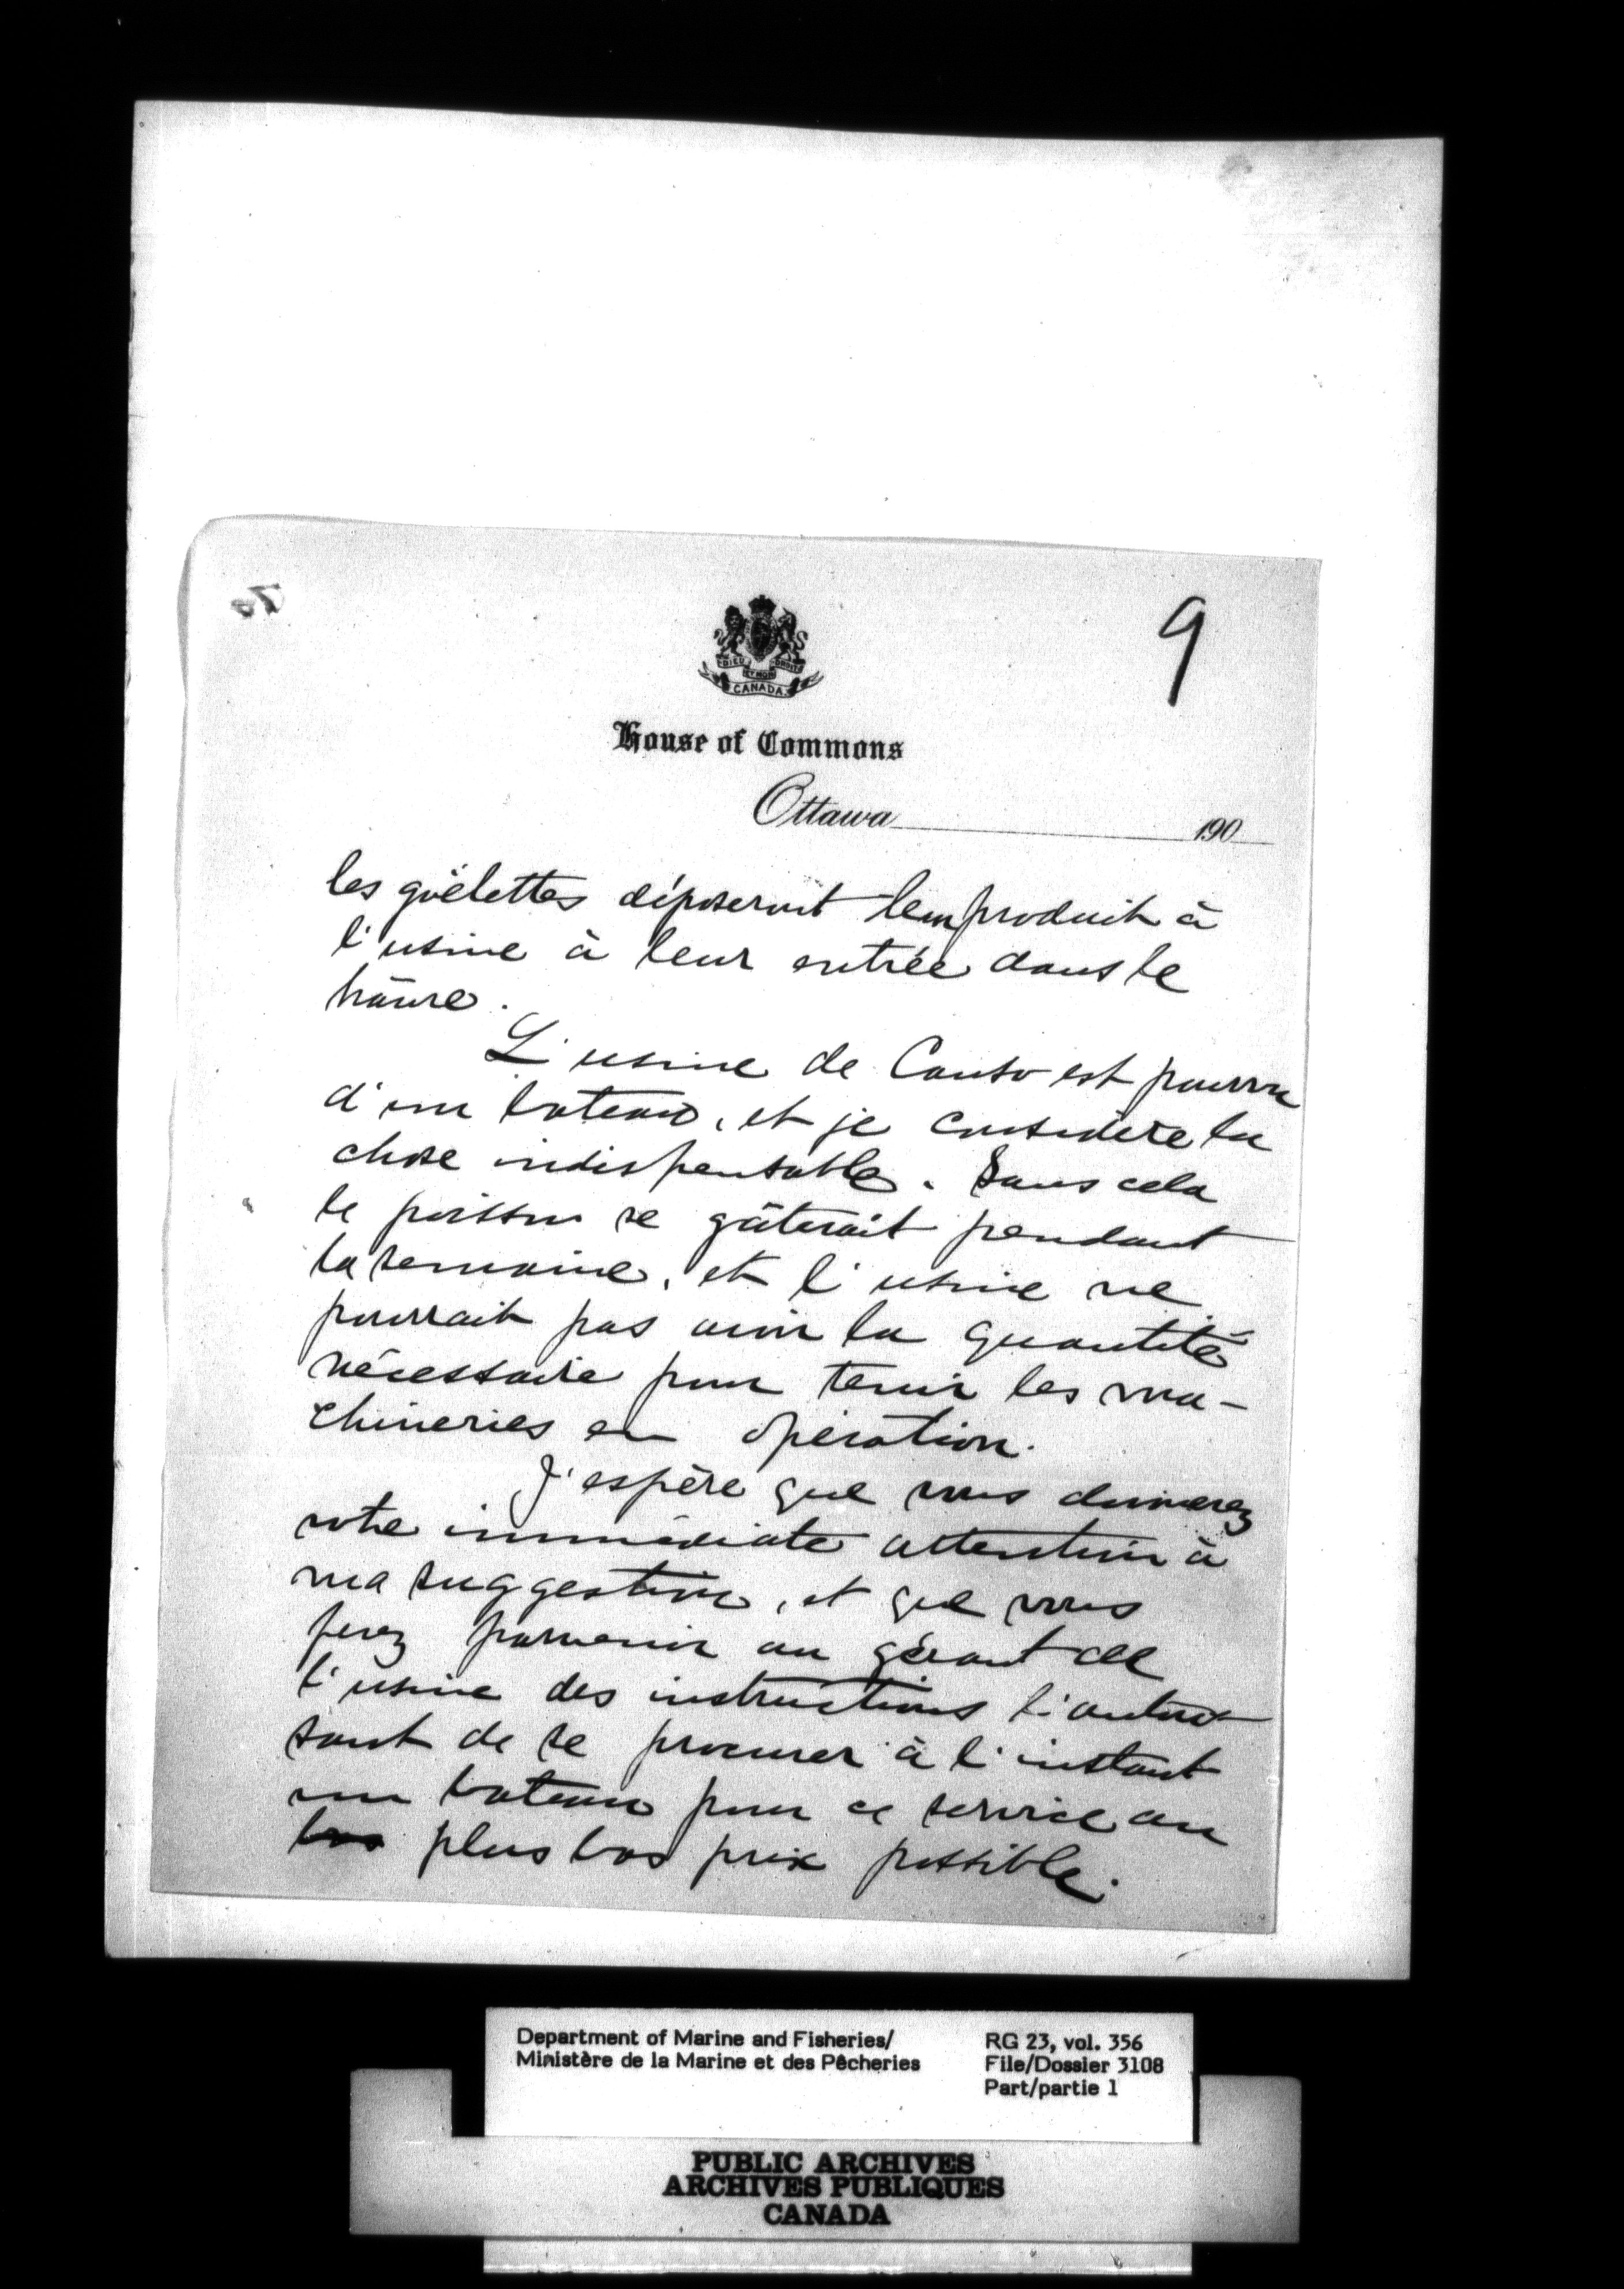 9
DIEU ET MON DROIT
CANADA
House of Commons
Ottawa 190
les goëlettes déposeront leur produit à
l'usine à leur entrée dans le
hâvre.
L'usine de Canso est pourvu
d'un bateau, et je considère la
chose indispensable. Sans cela
le poisson se gâterait pendant
la semaine, et l'usine ne
pourrait pas avoir la quantité
nécessaire pour tenir les ma-
chineries en opération.
J'espère que vous donnerez
votre immédiate attention à
ma suggestion, et que vous
ferez parvenir au gérant de
l'usine des instructions l'autori-
sant de se procurer à l'instant
un bateau pour ce service au
bas plus bas prix possible.
Department of Marine and Fisheries/
Ministère de la Marine et des Pêcheries
RG 23, vol. 356
File/Dossier 3108
Part/partie 1
PUBLIC ARCHIVES
ARCHIVES PUBLIQUES
CANADA